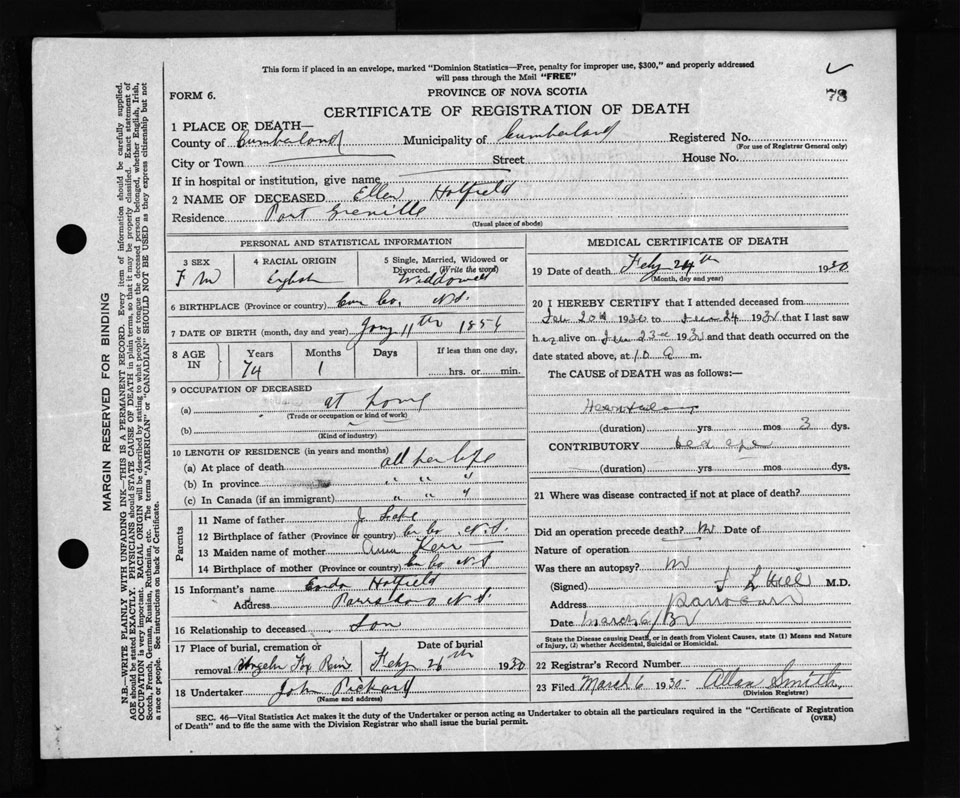 This form if placed in an envelope, marked "Dominion Statistics—Free, penalty for improper use, $300," and properly addressed
will pass through the Mail "FREE"
78
FORM 6.
PROVINCE OF NOVA SCOTIA
CERTIFICATE OF REGISTRATION OF DEATH
1 PLACE OF DEATH—
County of Cumberland Municipality of Cumberland Registered No.
(For use of Registrar General only)
City or Town Street House No.
If in hospital or institution, give name
2 NAME OF DECEASED Ellen Hatfield
Residence Port Greville
(Usual place of abode)
PERSONAL AND STATISTICAL INFORMATION
3 SEX
F
4 RACIAL ORIGIN
English
5 Single, Married, Widowed or
Divorced. (Write the word)
Widdowed
6 BIRTHPLACE (Province or country) Cum Co. N.S.
7 DATE OF BIRTH (month, day and year) Jany 11th 1856
8 AGE IN
Years Months Days If less than one day,
74 1 hrs. or min.
9 OCCUPATION OF DECEASED
(a) at home
(Trade or occupation or kind of work)
(b)
(Kind of industry)
10 LENGTH OF RESIDENCE (in years and months)
(a) At place of death all her life
(b) In province " " "
(c) In Canada (if an immigrant) " " "
Parents
11 Name of father J.
12 Birthplace of father (Province or country) Cum Co. N.S.
13 Maiden name of mother Anna Kerr
14 Birthplace of mother (Province or country) Cum Co N S
15 Informant's name Hatfield
Address Parrsboro N.S.
16 Relationship to deceased Son
17 Place of burial, cremation or Date of burial
removal Fox River Feby 26th 1930
18 Undertaker John Pickard
(Name and address)
MEDICAL CERTIFICATE OF DEATH
19 Date of death Feby 24th 1930
(Month, day and year)
20 I HEREBY CERTIFY that I attended deceased from
20 1930 to 24 193 that I last saw
h er alive on 23 193 and that death occurred on the
date stated above, at 10 A m.
The CAUSE of DEATH was as follows:—
(duration) yrs mos 3 dys.
CONTRIBUTORY old age
(duration) yrs mos dys.
21 Where was disease contracted if not at place of death?
Did an operation precede death? Date of
Nature of operation
Was there an autopsy?
(Signed) M.D.
Address Parrsboro
Date March 6/30
State the Disease causing Death, or in death from Violent Causes, state (1) Means and Nature
of Injury, (2) whether Accidental, Suicidal or Homicidal.
22 Registrar's Record Number
23 Filed March 6 1930 Allan Smith
(Division Registrar)
SEC. 46—Vital Statistics Act makes it the duty of the Undertaker or person acting as Undertaker to obtain all the particulars required in the "Certificate of Registration
of Death" and to file the same with the Division Registrar who shall issue the burial permit.
(OVER)
MARGIN RESERVED FOR BINDING
N.B.—WRITE PLAINLY WITH UNFADING INK—THIS IS A PERMANENT RECORD. Every item of information should be carefully supplied.
AGE should be stated EXACTLY. PHYSICIANS should STATE CAUSE OF DEATH in plain terms, so that it may be properly classified. Exact statement of
OCCUPATION is very important. RACIAL ORIGIN will be described by stating to what people or tongue the deceased person belonged, whether English, Irish,
Scotch, French, German, Russian, Ruthenian, etc. The terms "AMERICAN" or "CANADIAN" SHOULD NOT BE USED as they express citizenship but not
a race or people. See instructions on back of Certificate.